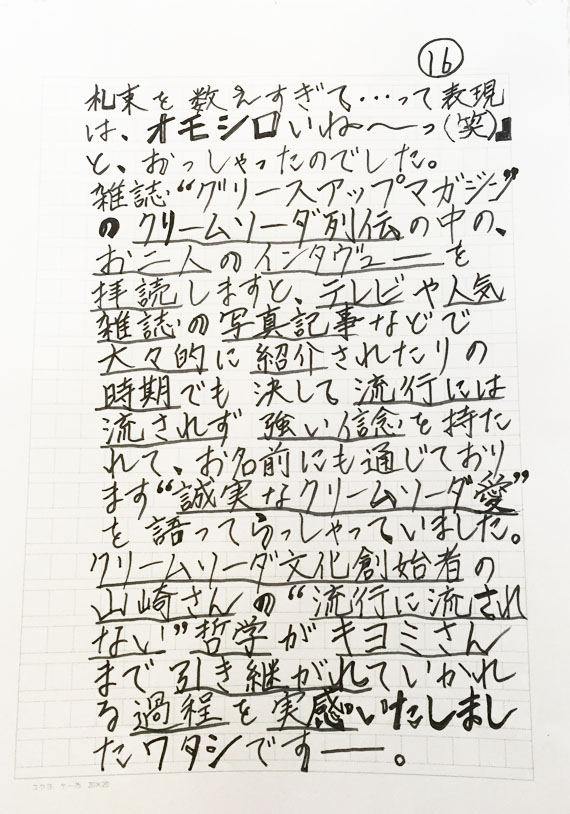 16
札束を数えすぎて・・・って表現
は、オモシロいね〜っ(笑)』
と、おっしゃったのでした。
雑誌“グリースアップマガジン”
のクリームソーダ列伝の中の、
お二人のインタヴューを
拝読しますと、テレビや人気
雑誌の写真記事などで
大々的に紹介されたりの
時期でも決して流行には
流されず強い信念を持た
れて、お名前にも通じており
ます“誠実なクリームソーダ愛”
を語ってらっしゃっていました。
クリームソーダ文化創始者の
山崎さんの“流行に流され
ない”哲学がキヨミさん
まで引き継がれていかれ
る過程を実感いたしまし
たワタシです――。
コクヨ ケー75 20×20